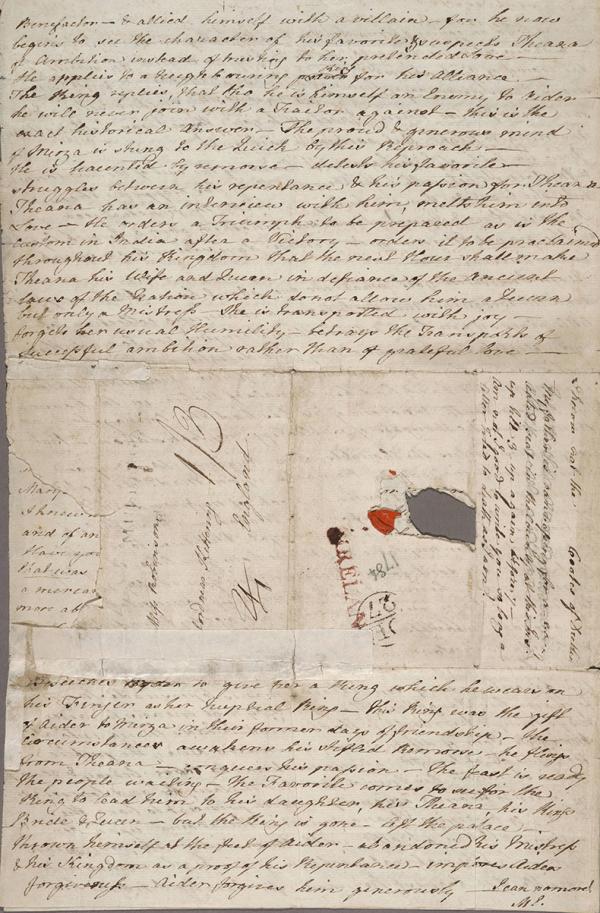 Benefactor — & allied himself with a villain — for he now
begins to see the character of his favorite & suspects Theana
of Ambition instead of trusting to her pretended Love —
He applies to a Neighbouring for his Alliance —
The King replies, that tho he is himself an Enemy to Aider
he will never join with a Traitor against — this is the
exact historical answer. The proud & generous mind
of Mirza is stung to the Quick by this Reproach —
He is haunted by remorse — detests his favorite —
struggles between his repentance & his passion for Theana
Theana has an interview with him, melts him into
Love — He orders a Triumph to be prepared as is the
custom in India after a Victory — orders it to be proclaimed
throughout his Kingdom that the next Hour shall make
Theana his Wife and Queen in defiance of the Ancient
laws of the Nation which do not allow him a Queen
but only a Mistress — She is transported with joy —
forgets her usual Humility — betrays the Transports of
successful ambition rather than of grateful love —
Many
I know
and of an
Have you
that was
a mercen
more ab
Miss
England
1/3
IRELAND
1784
27
up till
again
good
you so long a
letter
to give her a Ring which he wears on
his Finger as her Nuptial Ring — this Ring was the gift
of Aider to Mirza in their former days of friendship — the
Circumstance awakens his stifled Remorse — he flings
from Theana — conquers his passion — The feast is ready
the people waiting — The Favorite comes to for the
King to lead him to his daughter, his Theana, his King's
Bride & Queen — but the King is gone — left the palace
thrown himself at the feet of Aider — abandoned his Mistress
& his Kingdom as a proof of his Repentance — implores Aiders
forgiveness — Aider forgives him generously —